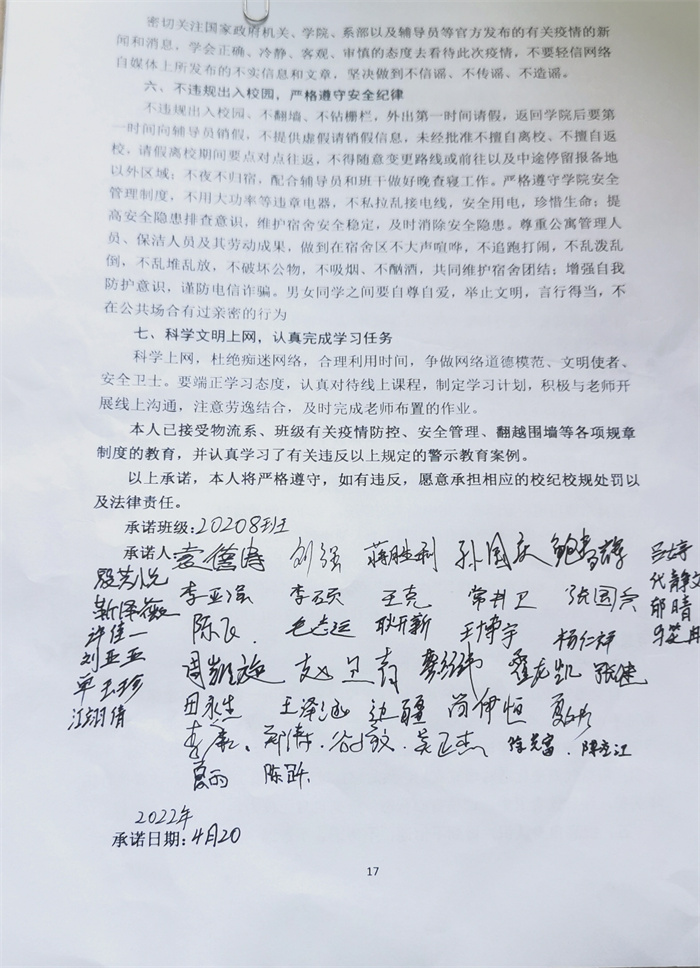 密切关注国家政府机关、学院、系部以及辅导员等官方发布的有关疫情的新
闻和消息，学会正确、冷静、客观、审慎的态度去看待此次疫情，不要轻信网络
自媒体上所发布的不实信息和文章，坚决做到不信谣、不传谣、不造谣。
六、不违规出入校园，严格遵守安全纪律
不违规出入校园、不翻墙、不钻栅栏，外出第一时间请假，返回学院后要第
一时间向辅导员销假，不提供虚假请销假信息，未经批准不擅自离校、不擅自返
校，请假离校期间要点对点往返，不得随意变更路线或前往以及中途停留报备地
以外区域；不夜不归宿，配合辅导员和班干做好晚查寝工作。严格遵守学院安全
管理制度，不用大功率等违章电器，不私拉乱接电线，安全用电，珍惜生命；提
高安全隐患排查意识，维护宿舍安全稳定，及时消除安全隐患。尊重公寓管理人
员、保洁人员及其劳动成果，做到在宿舍区不大声喧哗，不追跑打闹，不乱泼乱
倒，不乱堆乱放，不破坏公物，不吸烟、不酗酒，共同维护宿舍团结；增强自我
防护意识，谨防电信诈骗。男女同学之间要自尊自爱，举止文明，言行得当，不
在公共场合有过亲密的行为
七、科学文明上网，认真完成学习任务
科学上网，杜绝痴迷网络，合理利用时间，争做网络道德模范、文明使者、
安全卫士。要端正学习态度，认真对待线上课程，制定学习计划，积极与老师开
展线上沟通，注意劳逸结合，及时完成老师布置的作业。
本人已接受物流系、班级有关疫情防控、安全管理、翻越围墙等各项规章
制度的教育，并认真学习了有关违反以上规定的警示教育案例。
以上承诺，本人将严格遵守，如有违反，愿意承担相应的校纪校规处罚以
及法律责任。
承诺班级:20208班
承诺人 刘强 蒋胜利 孙国庆 吕婷
殷芙悦 李亚强 李硕 王克 常井卫 代静文
靳泽薇 陈飞 毛志远 耿开新 王博宇 杨仁祥 郁晴
许佳一
刘亚亚 周凯旋 霍龙凯 张健
单玉珍 田永杰 王泽涵 赵疆 尚伊恒
江翊倩 李康 郑涛 吴正杰 徐光富 陈立江
夏雨 陈跃
2022年
承诺日期:4月20
17